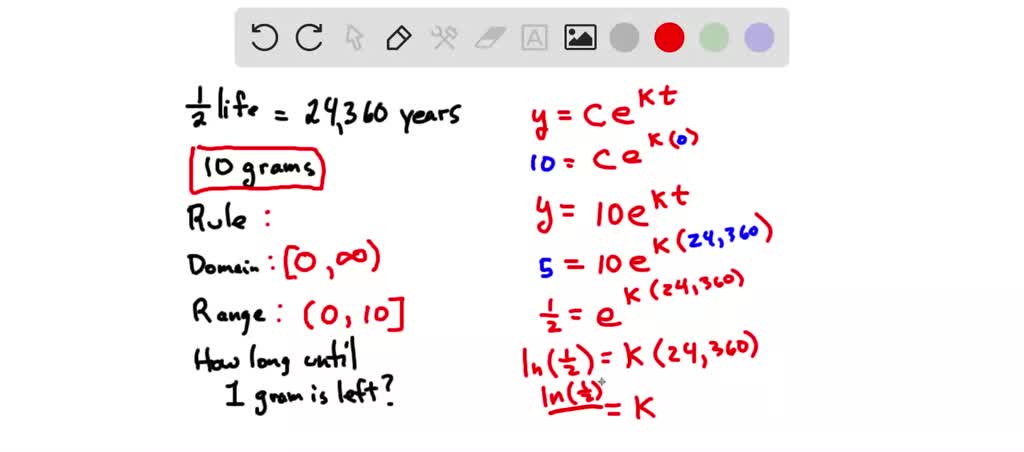 1/2 life = 24,360 years
10 grams
Rule :
Domain : [0, ∞)
Range : (0, 10]
How long until
1 gram is left?
y = Ce^{Kt}
10 = Ce^{K(0)}
y = 10e^{Kt}
5 = 10e^{K(24,360)}
1/2 = e^{K(24,360)}
ln(1/2) = K(24,360)
ln(1/2)/ = K
A